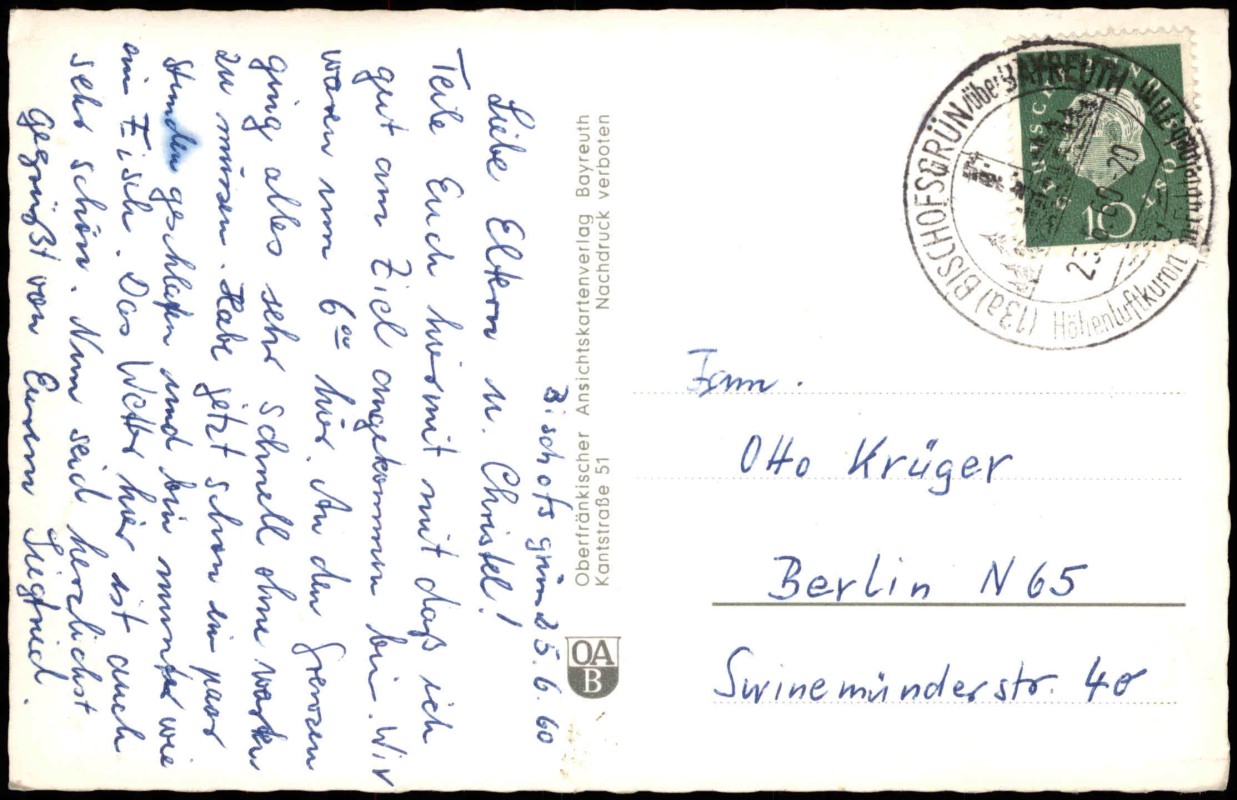 Bischofsgrün 25.6.60
Liebe Eltern u. Christel!
Teile Euch hiermit mit daß ich
gut am Ziel angekommen bin. Wir
waren um 6ºº hier. An den Grenzen
ging alles sehr schnell ohne warten
zu müssen. Habe jetzt schon ein paar
Stunden geschlafen und bin munter wie
ein Fisch. Das Wetter hier ist auch
sehr schön. Nun seid herzlichst
gegrüßt von Eurem Siegfried.
Oberfränkischer Ansichtskartenverlag Bayreuth
Kantstraße 51 Nachdruck verboten
OA
B
(13a) BISCHOFSGRÜN über BAYREUTH
Höhenluftkurort
-20
DEUTSCHE BUNDESPOST
10
Fam.
Otto Krüger
Berlin N 65
Swinemünderstr. 40